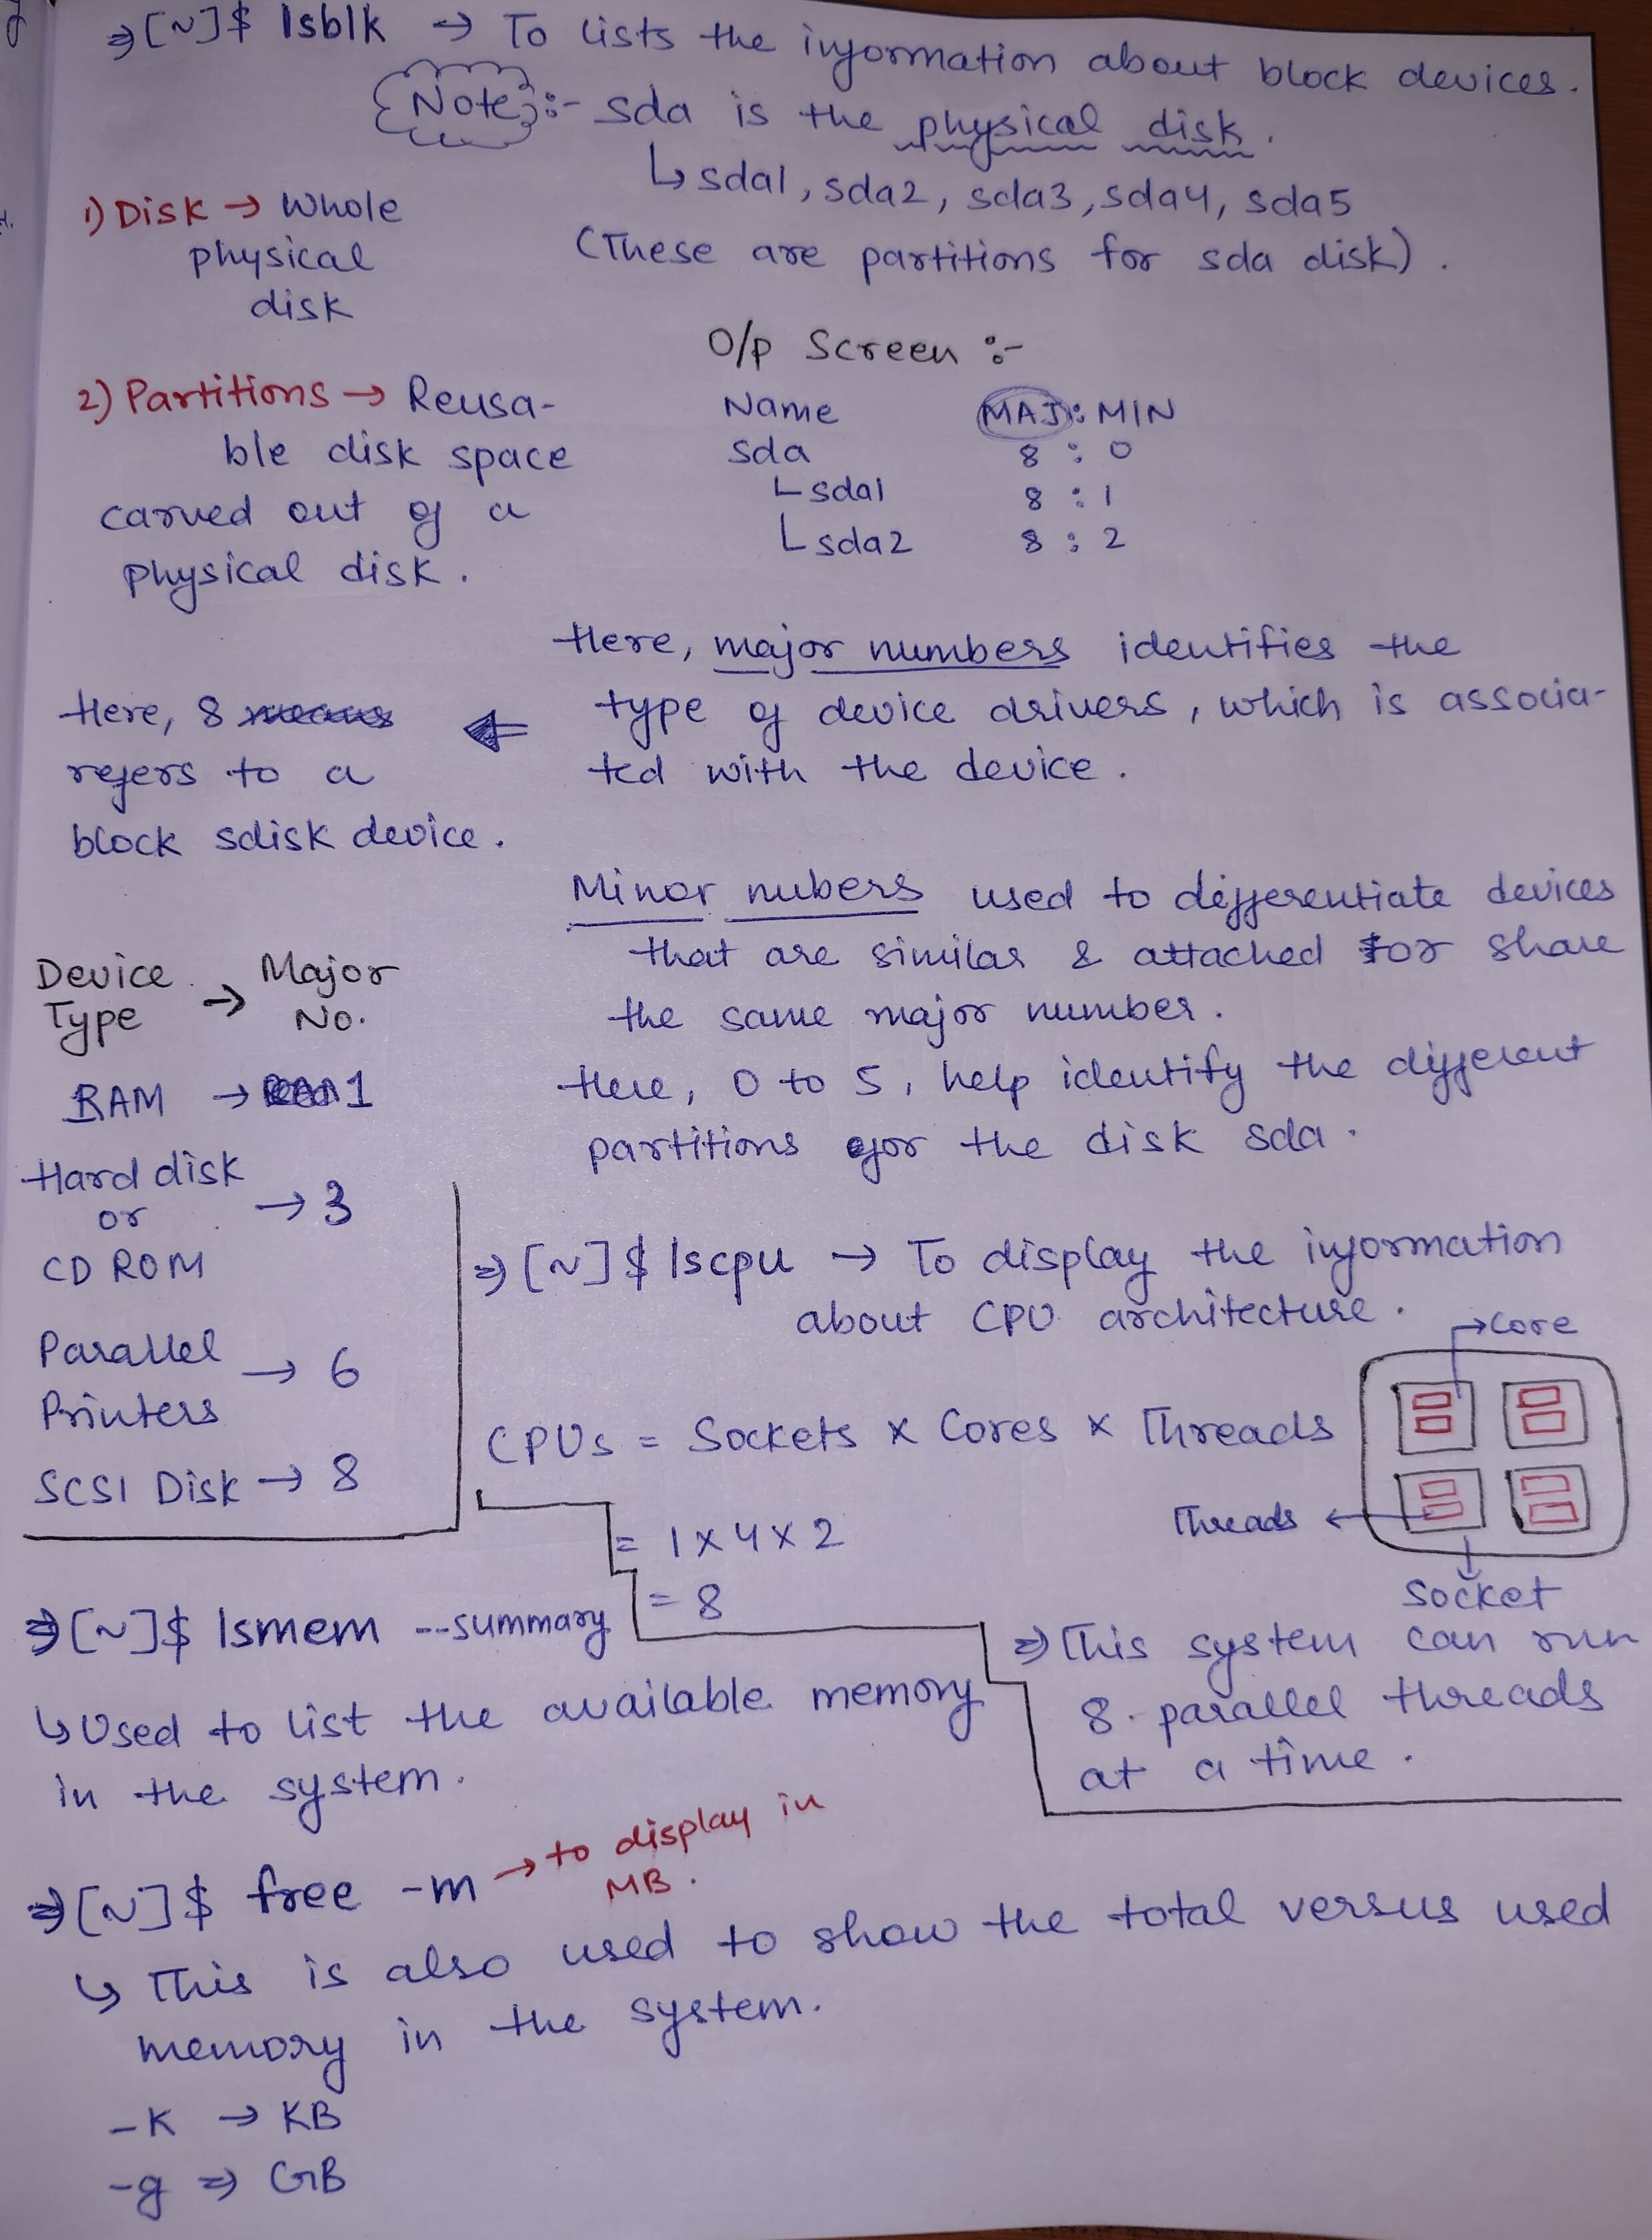 ⇒[~]$ lsblk → To lists the information about block devices.
Note :- sda is the physical disk.
↳ sda1, sda2, sda3, sda4, sda5
(These are partitions for sda disk).
1) Disk → Whole
physical
disk
2) Partitions → Reusa-
ble disk space
carved out of a
physical disk.
O/p Screen :-
Name MAJ : MIN
sda 8 : 0
└ sda1 8 : 1
└ sda2 8 : 2
Here, major numbers identifies the
type of device drivers, which is associa-
ted with the device.
Here, 8 means
refers to a
block sdisk device.
Minor nubers used to differentiate devices
that are similar & attached for share
the same major number.
Here, 0 to 5, help identify the different
partitions for the disk sda.
Device Type → Major No.
RAM → 1
Hard disk
or → 3
CD ROM
Parallel → 6
Printers
SCSI Disk → 8
⇒[~]$ lscpu → To display the information
about CPU architecture.
CPUs = Sockets x Cores x Threads
= 1 x 4 x 2
= 8
→ Core
Threads ←
Socket
⇒ This system can run
8 parallel threads
at a time.
⇒[~]$ lsmem --summary
↳ Used to list the available memory
in the system.
⇒[~]$ free -m → to display in
MB.
↳ This is also used to show the total versus used
memory in the system.
-K → KB
-g ⇒ GB